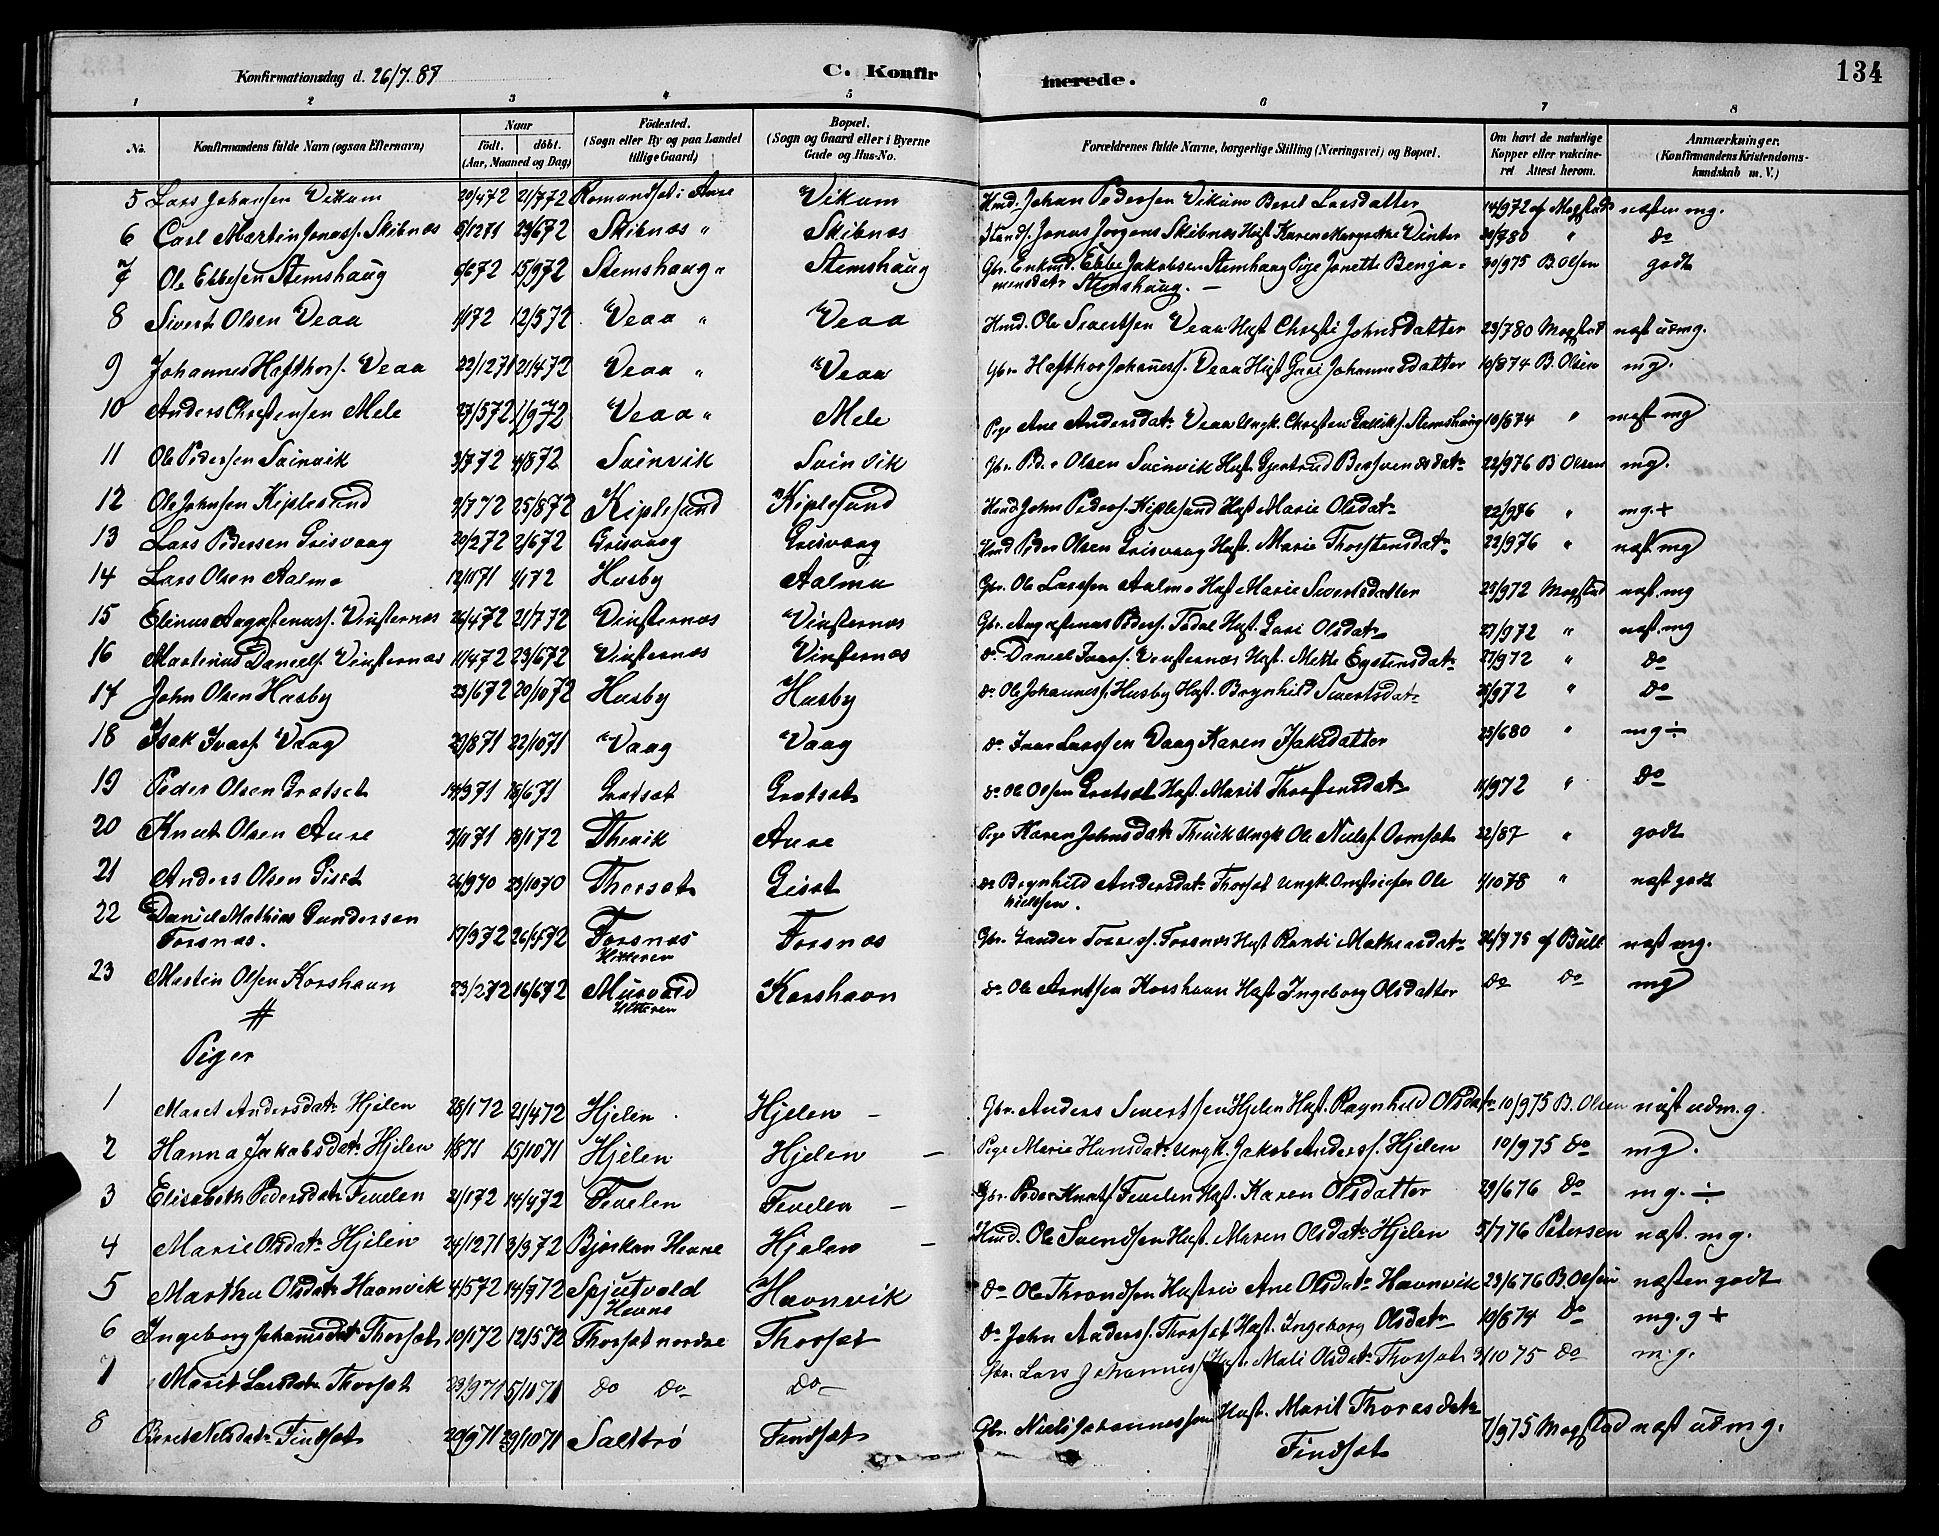 134
Konfirmationsdag d. 26/7. 87
C. Konfirmerede.
1 2 3 4 5 6 7 8
No. Konfirmandens fulde Navn (ogsaa Efternavn) Naar Födt. döbt. (Aar, Maaned og Dag) Födested. (Sogn eller By og paa Landet tillige Gaard) Bopæl. (Sogn og Gaard eller i Byerne Gade og Hus-No. Forældrenes fulde Navne, borgerlige Stilling (Næringsvei) og Bopæl. Om havt de naturlige Kopper eller vakcineret Attest herom. Anmærkninger. (Konfirmandens Kristendomskundskab m. V.)
5 Lars Johansen Vikum 20/4 72 21/7 72 Romundset i Aure Vikum Hmd. Johan Pedersen Vikum Beret Larsdatter 14/9 72 af Mogstad næsten mg.
6 Carl Martin Jonass. Skibnæs 5/12 71 23/6 72 Skibnæs " Skibnæs Jonas Jørgens Skibnæs Hust Karen Margrethe Vinter 20/7 80 " do
7 Ole Ebbesen Stemshaug 6/6 72 15/9 72 Stemshaug " Stemshaug Gbr. Enkmd. Ebbe Jakobsen Stemshaug Pige Jonette Benja-
mensdatr Stemshaug. 30/9 75 B. Olsen godt
8 Sivert Olsen Veaa 1/1 72 12/5 72 Veaa " Veaa Hmd. Ole Sivertsen Veaa Hust Christi Johnsdatter 23/7 80 Mogstad næst udmg.
9 Johannes Hafthors. Veaa 22/12 71 21/4 72 Veaa " Veaa Gbr. Hafthor Johaness. Veaa Hust Guri Johannesdatter 10/8 74 B. Olsen mg.
10 Anders Christensen Mele 27/5 72 1/9 72 Veaa " Mele Pige Ane Andersdatr Veaa Ungk. Christen Stemshaug 10/6 74 " næst mg
11 Ole Pedersen Svinvik 3/7 72 4/8 72 Svinvik Svinvik Gbr. Peder Olsen Svinvik Hust Gjertrud 22/9 76 B Olsen mg.
12 Ole Johnsen Kiplesund 2/7 72 25/8 72 Kiplesund Kiplesund Hmd John Peders. Kiplesund Hust Marie Olsdatr 22/9 76 " mg. +
13 Lars Pedersen Grisvaag 20/2 72 2/6 72 Grisvaag Grisvaag Hmd Peder Olsen Grisvaag Hust. Marie Thorstensdatr 22/9 76 " næst mg
14 Lars Olsen Aalmo 12/11 71 1/1 72 Husby Aalmo Gbr. Ole Larssen Aalmo Hust Marie Sivertsdatter 25/9 72 Mogstad næst. mg
15 Elinus Augustenuss. Vinsternæs 26/4 72 21/7 72 Vinsternæs Vinsternæs Gbr. Augustenus Peders. Todal Hust. Guri Olsdatr 27/9 72 " næst. mg
16 Martinus Daniels. Vinsternæs 11/4 72 23/6 72 Vinsternæs Vinsternæs do Daniel Ivers. Vinsternæs Hust. Mette Eystensdatr 27/9 72 " do
17 John Olsen Husby 23/6 72 20/10 72 Husby Husby do Ole Johanness. Husby Hust. Brynhild Sivertsdatr 25/9 72 " do
18 Isak Ivars. Vaag 29/8 71 22/10 71 Vaag Vaag do Ivar Larssen Vaag Karen Isaksdatter 23/6 80 " mg ÷
19 Peder Olsen Grotset 18/6 71 Grotset Grotset do Ole Olsen Grotset Hust. Marit Thorstensdatr 11/9 72 " do
20 Knut Olsen Aure 7/11 71 18/1 72 Thevik Aure Pige Karen Johnsdatr Thevik Ungk Ole Niels. Ormset 22/87 " godt
21 Anders Olsen Giset 26/9 70 23/10 70 Thorset Giset do Brynhild Andersdatr Thorset Ungk. Ole
Nielsen. 1/10 78 " næst godt
22 Daniel Mathias Gundersen
Forsnæs. 17/3 72 26/4 72 Forsnæs
Hitteren Forsnæs Gbr. Gunder Torress. Forsnæs Hust Randi Mathiasdatr 26/7 75 af Bull næst mg.
23 Martin Olsen Korshavn 23/2 72 16/6 72
Hitteren Korshavn do Ole Arntsen Korshavn Hust Ingeborg Olsdatter do do mg
#
Piger
1 Maret Andersdatr Hjelen 28/1 72 21/4 72 Hjelen Hjelen – Gbr. Anders Sivertsen Hjelen Hust. Ragnhild Olsdatr 10/9 75 B. Olsen næst udm.g.
2 Hanna Jakobsdatr Hjelen 1/8 71 15/10 71 Hjelen Hjelen – Pige Marie Hansdatr Ungk. Jakob Anderss. Hjelen 10/9 75 do mg.
3 Elisabeth Pedersdatr Tevelen 21/1 72 14/4 72 Tevelen Tevelen – Gbr. Peder Knuts Tevelen Hust. Karen Olsdatter 29/6 76 do mg. ÷
4 Marie Olsdatr Hjelen 24/12 71 3/3 72 Bjørkan Hevne Hjelen – Hmd. Ole Svendsen Hust. Maren Olsdatr Hjelen 5/7 76 Petersen næst. mg.
5 Martha Olsdatr Havnvik 4/5 72 14/9 72 Spjutvold
Hevne Havnvik do Ole Throndsen Hustru Ane Olsdatr Havnvik 23/6 76 B. Olsen næsten godt
6 Ingeborg Johansdatr Thorset 10/1 72 12/5 72 Thorset nordre Thorset do John Anderss. Thorset Hust. Ingeborg Olsdatr 10/8 74 do mg. g +
7 Marit Larsdatr Thorset 23/9 71 5/10 71 do do do Gbr. Lars Johanness Hust. Mali Olsdatr Thorset 3/10 75 do m.g.
8 Beret Nilsdatr Findset 20/9 71 29/10 71 Saltrø Findset Gbr. Niels Johannessen Hust. Marit Thoresdatr
Findset 7/9 75 Mogstad næst udmg.